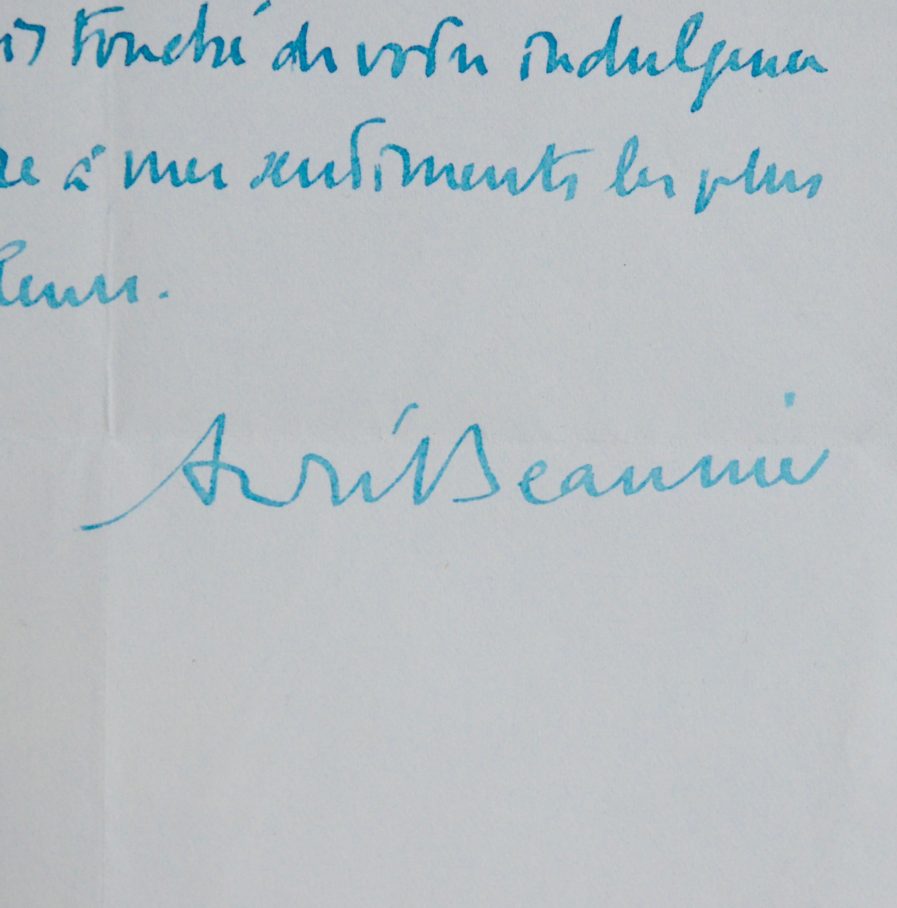 touché de votre indulgence
à mes sentiments les plus
André Beaunier